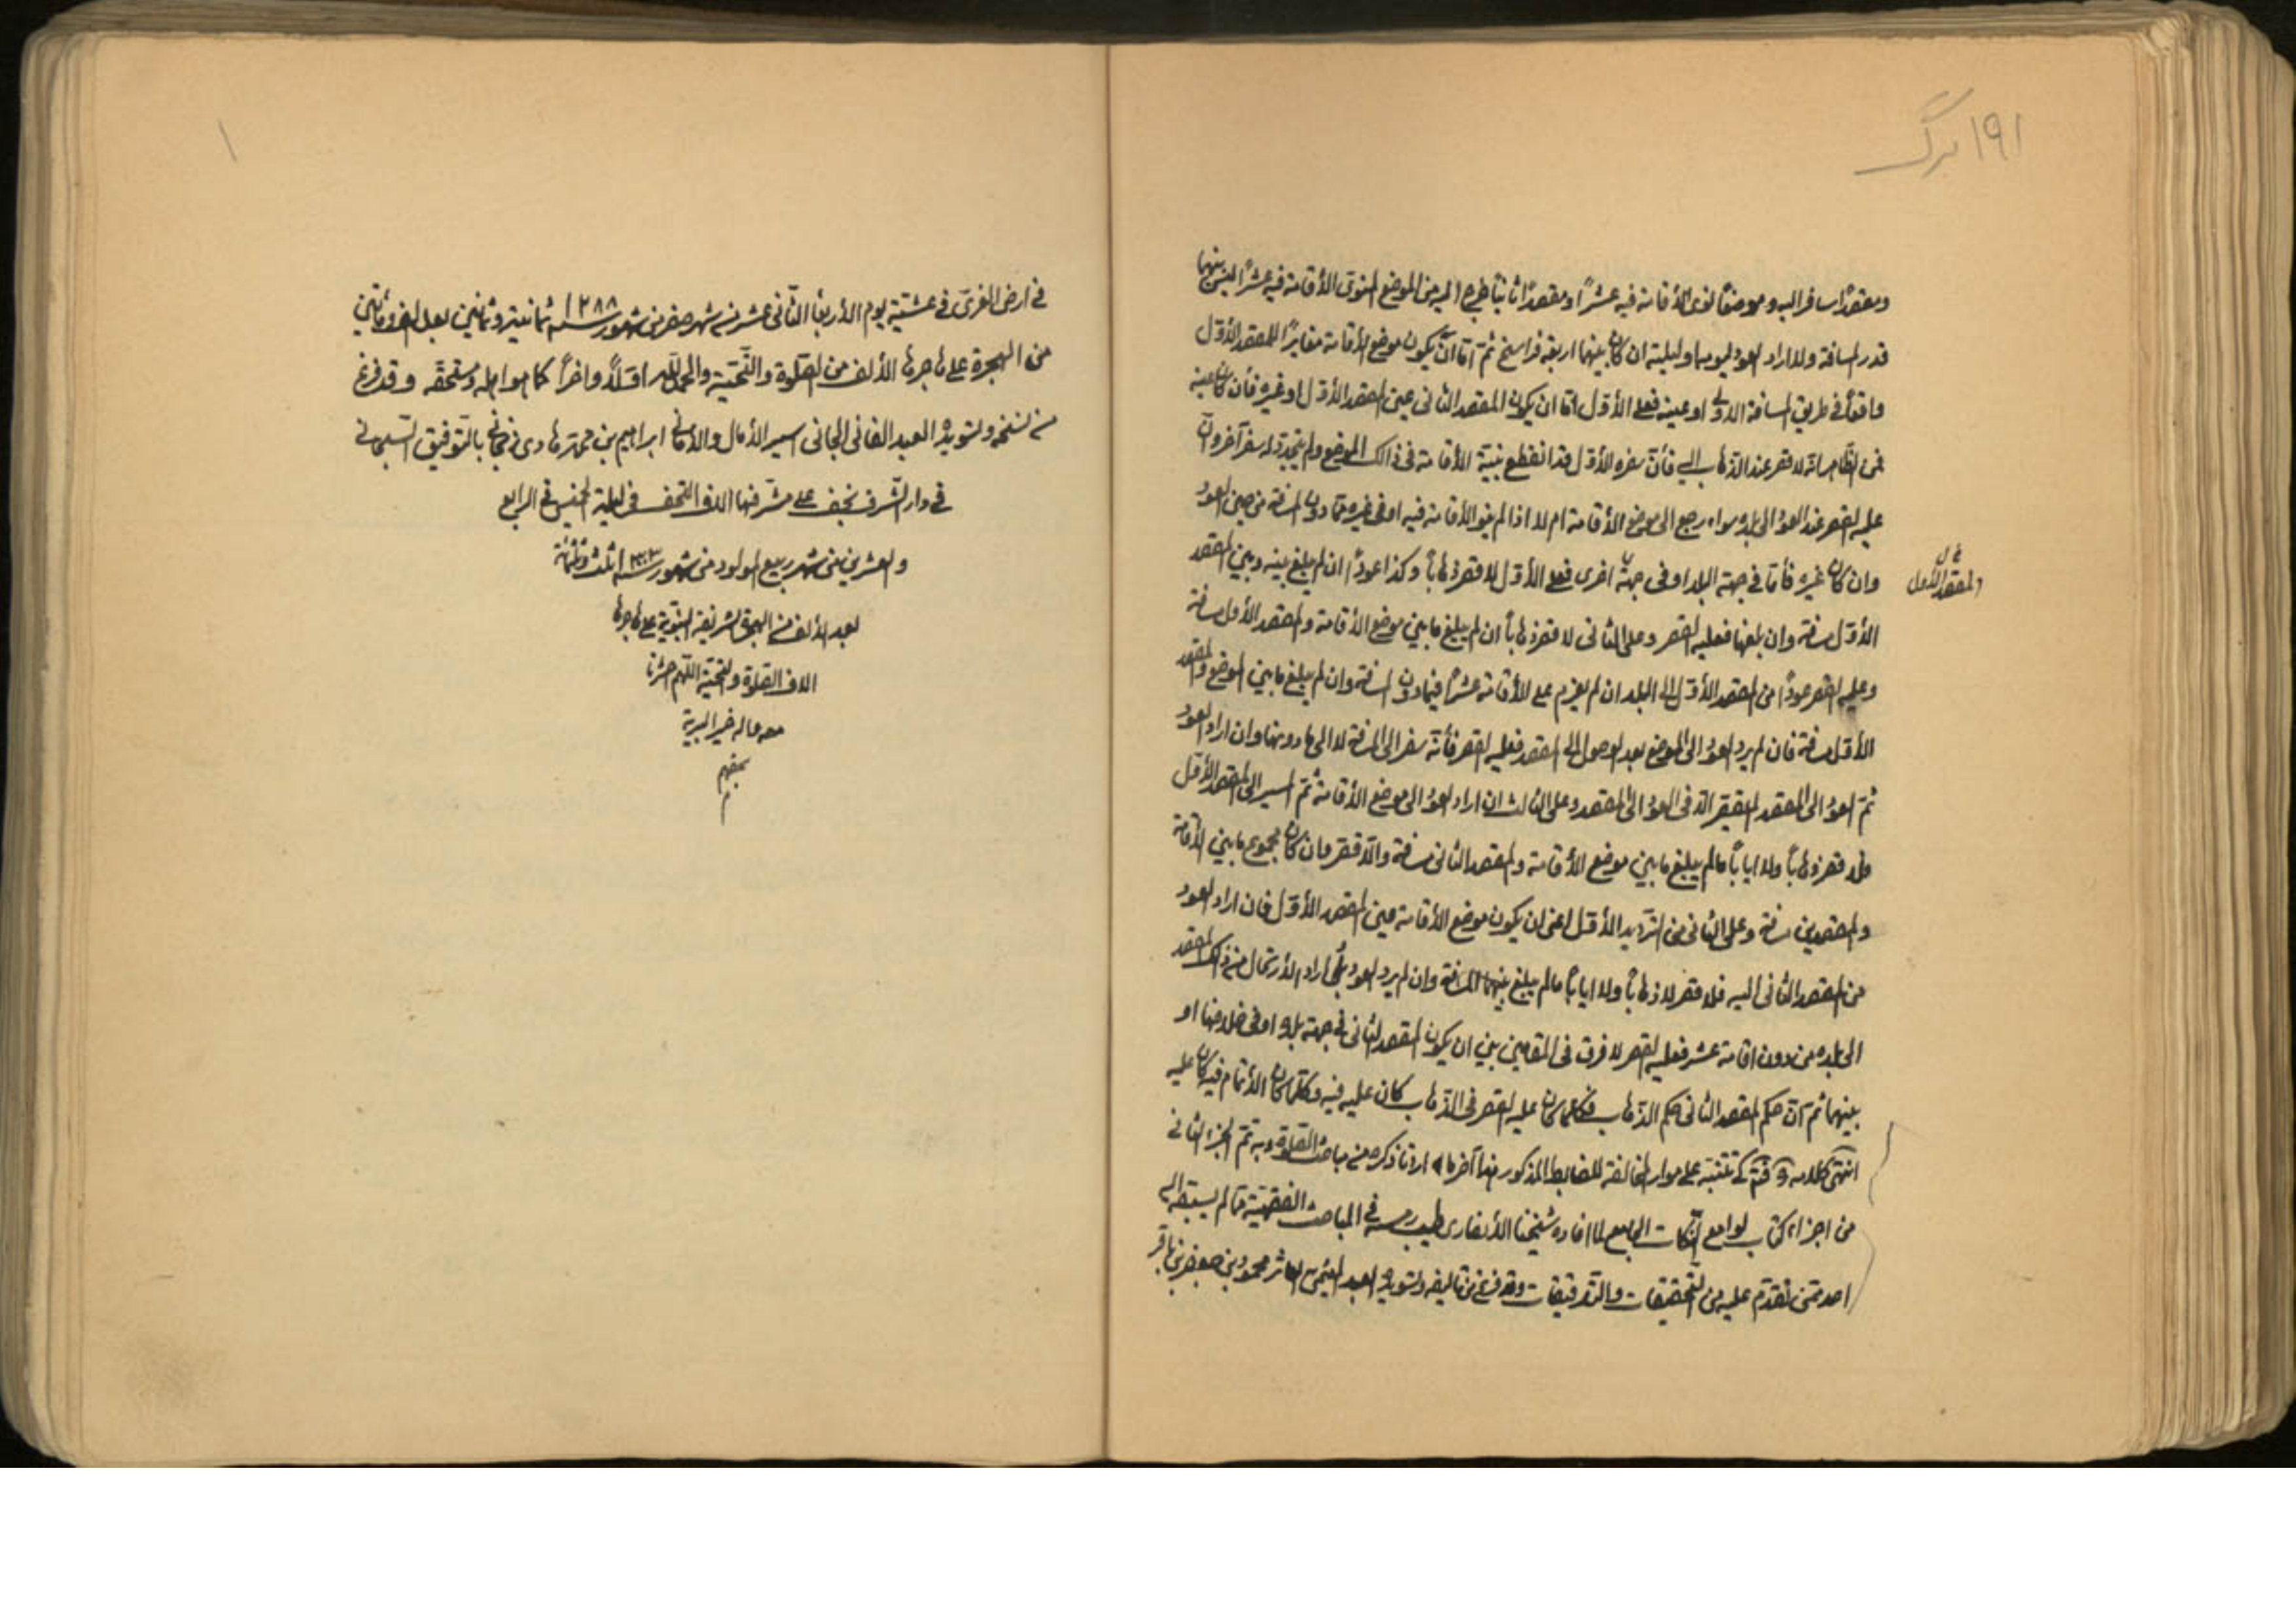 ۱۹۱ برگ
ومقصدًا سافر اليه وموضعًا نوى الأقامة فيه عشرًا ومقصدًا ثانيًا طرء اليه من الموضع المنوى الأقامة فيه عشرًا ليس بينهما
قدر المسافة ولا اراد العود ليومه او ليلته ان كان بينهما اربعة فراسخ ثمّ امّا ان يكون موضع الأقامة مغايرًا للمقصد الأوّل
واقعًا في طريق المسافة الاولى او عينه فعلى الأوّل امّا ان يكون المقصد الثانى عين المقصد الأوّل او غيره فأن كان عينه
فمن الظاهر انه لا قصر عند الذهاب اليه فأنّ سفره الأوّل قد انقطع بنيّة الأقامة فى ذالك الموضع ولم يتجدّد له سفر آخر وانّ
عليه القصر عند العود الى بلده سواء رجع الى موضع الأقامة ام لا اذا لم ينو الأقامة فيه او فى غيره ممّا دون المسافة من حين العود
وان كان غيره فأمّا فى جهة البلد او فى جهة اخرى فعلى الأوّل لا قصر ذهابًا وكذا عودًا ان لم يبلغ بينه وبين المقصد
المقصد الأول
الأوّل مسافة وان بلغها فعليه القصر وعلى الثانى لا قصر ذهابًا ان لم يبلغ ما بين موضع الأقامة والمقصد الأول مسافة
وعليه القصر عودًا من المقصد الأوّل الى البلد ان لم يعزم على الأقامة عشرًا فيما دون المسافة وان لم يبلغ ما بين الموضع والمقصد
الأوّل مسافة فان لم يرد العود الى الموضع بعد الوصول الى المقصد فعليه القصر فأنّه سفر الى المسافة لا الى ما دونها وان اراد العود
ثمّ العود الى المقصد لم يقصر الّا فى العود الى المقصد وعلى الثالث ان اراد العود الى موضع الأقامة ثمّ المسير الى المقصد الأوّل
فلا قصر ذهابًا ولا ايابًا ما لم يبلغ ما بين موضع الأقامة والمقصد الثانى مسافة والّا قصر وان كان مجموع ما بين الأقامة
والمقصدين مسافة وعلى الثانى من الترديد الأوّل اعنى ان يكون موضع الأقامة عين المقصد الأوّل فان اراد العود
من المقصد الثانى اليه فلا قصر لا ذهابًا ولا ايابًا ما لم يبلغ بينهما المسافة وان لم يرد العود بل اراد الأرتحال من ذلك المقصد
الى بلده من دون اقامة عشر فعليه القصر لا فرق فى المقامين بين ان يكون المقصد الثانى فى جهة بلده او فى خلافها او
بينهما ثمّ انّ حكم المقصد الثانى حكم الذهاب فكلما كان عليه القصر فى الذهاب كان عليه فيه وكلّما كان الأتمام فيه كان عليه
انتهى كلامه المذكور هنا آخر ما اردنا ذكره من مباحث الصّلوة وبه تمّ الجزء الثانى
من اجزاء كتاب لوامع النكات الجامع لما افاده شيخنا الأنصارى طيب رمسه فى المباحث الفقهيّة ممّا لم يسبقه اليه
احد ممّن تقدّم عليه من التحقيقات والتّدقيقات وقد فرغ من تأليفه وتسويده العبد العاثر محمود بن جعفر بن باقر
۱
فى ارض الغرىّ فى عشيّة يوم الأربعا الثّانى عشر من شهر صفر من شهور سنه ۱۲۸۸ ثمانية وثمانين بعد الف ومأتين
من الهجرة على هاجرها الألف من الصّلوة والتّحيّة والحمد للّه اوّلًا وآخرًا كما هو اهله ومستحقّه وقد فرغ
من نسخه وتسويده العبد الفانى الجانى اسير الأمال والأمانى ابراهيم بن محمّد هادى بالتّوفيق السّبحانى
فى دار الشّرف نجف على مشرّفها الاف التّحف فى ليلة الخميس فى الرابع
والعشرين من شهر ربيع المولود من شهور سنه ثلث وثلثمائة
بعد الألف من الهجرة الشريفة النبويّة على هاجرها
الاف الصّلوة والتحيّة اللّهم احشرنا
معه واله خير البريّة
بحقهم